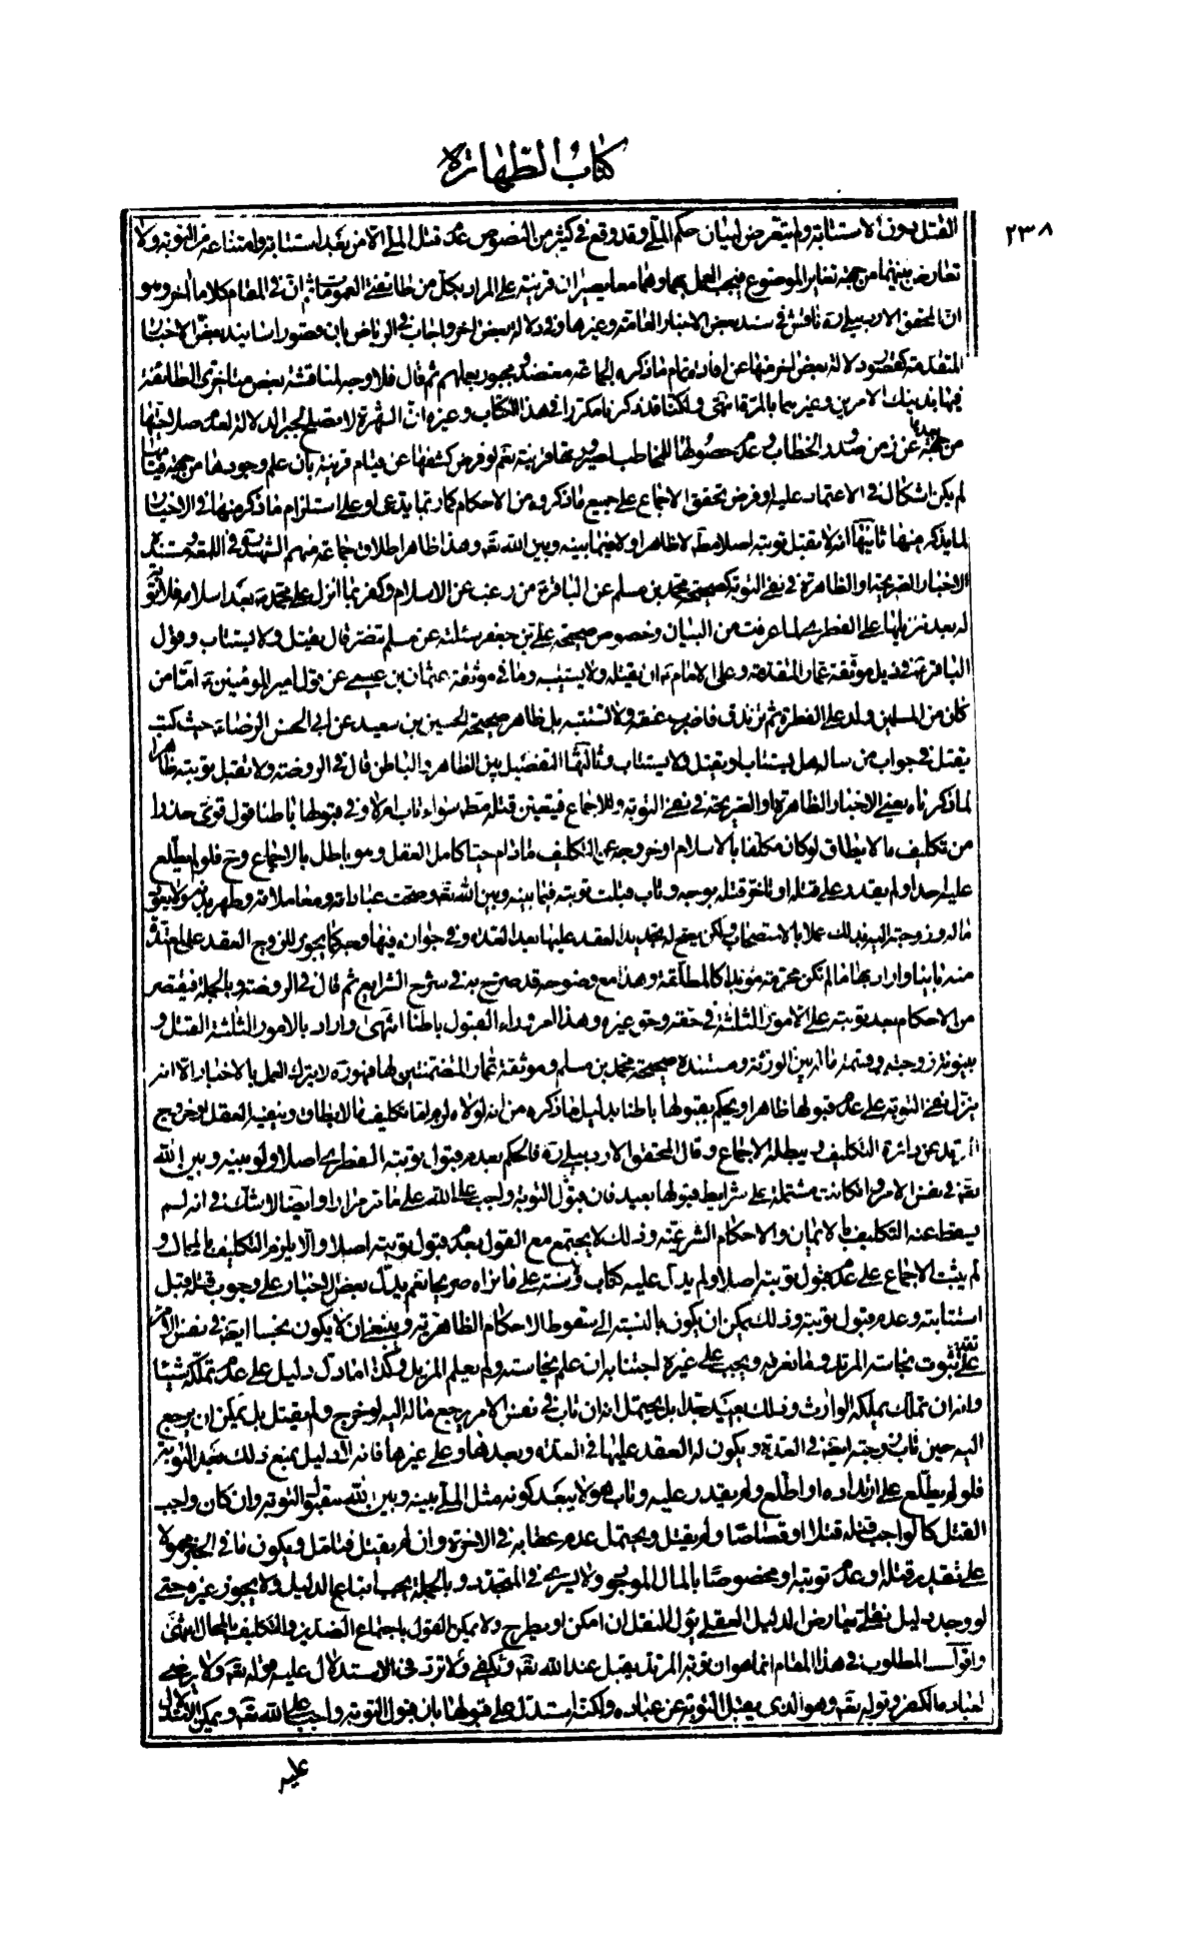 كتاب الطهارة
٢٣٨
القتل بدون الاستتابة ولم يتعرض لبيان حكم الملي وقد وقع في كثير من النصوص عدم قتل الملي الا من بعد استتابته وامتناعه من التوبة ولا
تعارض بينهما من جهة تغاير الموضوع فيجب العمل بهما وهما معا يصيران قرينة على المراد بكل من طائفتي العمومات ثم ان في المقام كلاما اخر وهو
ان المحقق الاردبيلي ره ناقش في سند بعض الاخبار العامة وغيرها وفي دلالة بعض اخر واجاب في الرياض بان قصور اسانيد بعض الاخبار
المتقدمة كقصور دلالة بعض اخر منها عن افادة تمام ما ذكره الجماعة معتضد ومجبور بعملهم ثم قال فلا وجه لمناقشة بعض متاخري الطائفة
فيها بذينك الامرين وغيرهما بالمرة انتهى ولكنا قد ذكرنا مكررا في هذا الكتاب وغيره ان الشهرة لا تصلح لجبر الدلالة لعدم صلاحيتها
من جهة عن من صدر الخطاب وعدم حصولها للمخاطب قرينة نعم لو فرض كشفها عن قيام قرينة بان علم وجودها من جهة
لم يكن اشكال في الاعتماد عليه او فرض تحقق الاجماع على جميع ما ذكروه من الاحكام كما ربما يدعى او على استلزام ما ذكر منها في الاخبار
لما يذكر منها ثانيها انه لا يقبل توبته اصلا مطلقا لا ظاهرا ولا فيما بينه وبين الله تعالى وهذا ظاهر اطلاق جماعة منهم الشهيد في اللمعة ومستنده
الاخبار الصريحة او الظاهرة في نفي التوبة كصحيحة محمد بن مسلم عن الباقر ع من رغب عن الاسلام وكفر بما انزل على محمد ص بعد اسلامه فلا توبة
له بعد تنزيلها على الفطري لما عرفت من البيان وخصوص صحيحة علي بن جعفر سئلته عن مسلم تنصر قال يقتل ولا يستتاب وقول
الباقر ع في ذيل موثقة عمار المتقدمة وعلى الامام ع ان يقتله ولا يستتيبه وما في موثقة عثمان بن عيسى عن قول امير المؤمنين ع اما من
كان من المسلمين ولد على الفطرة ثم تزندق فاضرب عنقه ولا تستتبه بل ظاهر صحيحة الحسين بن سعيد عن ابي الحسن الرضا ع حيث كتب
يقتل في جواب من ساله هل يستتاب او يقتل ولا يستتاب وثالثها التفصيل بين الظاهر والباطن قال في الروضة ولا تقبل توبته ظاهرا
لما ذكرناه يعني الاخبار الظاهرة او الصريحة في نفي التوبة وللاجماع فيتعين قتله مطلقا سواء تاب ام لا وفي قبولها باطنا قول قوي حذرا
من تكليف ما لا يطاق لو كان مكلفا بالاسلام او خروجه عن التكليف ما دام حيا كامل العقل وهو باطل بالاجماع وح فلو لم يطلع
عليه احد او لم يقدر على قتله او تاخر قتله بوجه وتاب قبلت توبته فيما بينه وبين الله تعالى وصحت عباداته ومعاملاته وطهر بدنه ولا يعود
ماله وزوجته اليه بذلك عملا بالاستصحاب ولكن يصح له تجديد العقد عليها بعد العدة وفي جوازه فيها وجه كما يجوز للزوج العقد على المعتدة
منه بائنا واراد بها ما لم تكن محرمة مؤبدا كالمطلقة وهذا مع وضوحه قد صرح به في شرح الشرايع ثم قال في الروضة وبالجملة فيقتصر
من الاحكام بعد توبته على الامور الثلثة في حقه وحق غيره وهذا امر وراء القبول باطنا انتهى واراد بالامور الثلثة القتل و
بينونة زوجته وقسمة ماله بين الورثة ومستنده صحيحة محمد بن مسلم وموثقة عمار المتضمنتين لها فهو ره لا يترك العمل بالاخبار الا انه
ينزل نفي التوبة على عدم قبولها ظاهرا ويحكم بقبولها باطنا بدليل ما ذكره من انه لولاه لزم اما تكليف ما لا يطاق وينفيه العقل او خروج
المرتد عن دائرة التكليف ويبطله الاجماع وقال المحقق الاردبيلي ره فالحكم بعدم قبول توبة الفطري اصلا ولو بينه وبين الله
تعالى في نفس الامر ولو كانت مشتملة على شرايط قبولها بعيد فان قبول التوبة واجب على الله على ما تر مرارا وايضا لا شك في انه لم
يسقط عنه التكليف بالايمان والاحكام الشرعية وذلك لا يجتمع مع القول بعدم قبول توبته اصلا والا يلزم التكليف بالمحال و
لم يثبت الاجماع على عدم قبول توبته اصلا ولم يدل عليه كتاب ولا سنة على ما نراه صريحا نعم يدل بعض الاخبار على وجوب قتله قبل
استتابته وعدم قبول توبته وذلك يمكن ان يكون بالنسبة الى سقوط الاحكام الظاهرية وينبغي ان لا يكون نجسا ايضا في نفس الامر
على ثبوت نجاسة المرتد وما نعرفه ويجب على غيره اجتنابه ان علم نجاسته ولم يعلم المزيل وكذا ما دل دليل على عدم تملكه شيئا
وانه ان تملك يملكه الوارث وذلك بعيد جدا بل يحتمل انه ان تاب في نفس الامر يرجع ماله اليه لو خرج ولم يقتل بل يمكن ان يرجع
اليه حين تاب زوجته ايضا في العدة ويكون له العقد عليها في العدة وبعدها وعلى غيرها فانه لا دليل يمنع ذلك بعد التوبة
فلو لم يطلع على ارتداده او اطلع ولم يقدر عليه وتاب هو لا يبعد كونه مثل الملي بينه وبين الله بقبول التوبة وان كان واجب
القتل كالواجب قتله قتلا او قصاصا ولم يقتل ويحتمل عدم عقابه في الاخرة وان لم يقتل فتامل ويكون ما في الخبر محمولا
على تقدير قتله او عدم توبته او مخصوصا بالمال الموجود ولا يسري في المتجدد وبالجملة يجب اتباع الدليل ولا يجوز غيره حتى
لو وجد دليل نقلي يعارض الدليل العقلي يؤل النقل ان امكن او يطرح ولا يمكن القول باجتماع الضدين والتكليف بالمحال انتهى
واقول المطلوب في هذا المقام انما هو ان توبة المرتد يقبل عند الله تعالى ويكفي في الاستدلال عليه قوله تعالى ولا يرضى
لعباده الكفر وقوله تعالى وهو الذي يقبل التوبة عن عباده ولكنه استدل على قبولها بان قبول التوبة واجب على الله تعالى ويمكن الاستدلال
عليه